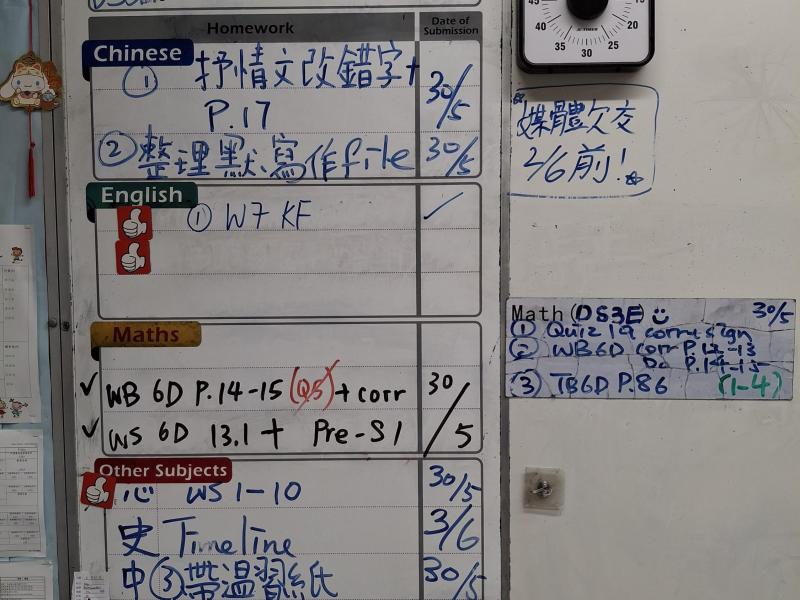 Homework
Date of Submission
Chinese
① 抒情文改錯字+
P.17
30/5
② 整理默寫作file 30/5
English
① W7 KF ✓
Maths
✓ WB 6D P.14-15 (Q5) + corr 30/5
✓ WS 6D 13.1 + Pre-S1
Other Subjects
心 WS 1-10 30/5
史 Timeline 3/6
中③帶溫習紙 30/5
45 40 35 30 25 20 15
媒體欠交
2/6前!
Math (DS3E) 30/5
① Quiz 19 corr+sign
② WB6D corr P.12-13
Do P.14-15
③ TB6D P.86 (1-4)